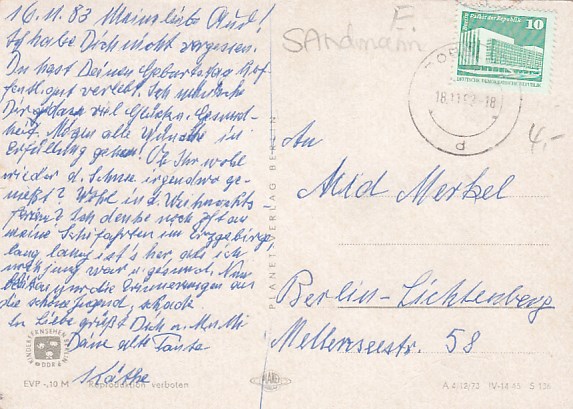 16.11.83 Meine liebe Aud!
Ich habe Dich nicht vergessen.
Du hast Deinen Geburtstag hof-
fentl. gut verlebt. Ich wünsche
Dir viel Glück u. Gesund-
heit. Mögen alle Wünsche in
Erfüllung gehen! Ob Ihr wohl
wieder d. Schnee irgendwo ge-
nießt? Wohl in d. Weihnachts-
ferien? Ich denke noch oft an
meine Schifahrten im Erzgebirge
lang lang ist's her, als ich
noch jung war u. gesund. Nun
bleiben nur die Erinnerungen an
die schöne Jugend, schade
In Liebe grüßt Dich u. Mutti
Deine alte Tante
Käthe
KINDERFERNSEHEN BERLIN
DDR
EVP -,10 M Reproduktion verboten
PLANET-VERLAG BERLIN
PLANET
F.
SANdmann
Berlin Palast der Republik 10
DEUTSCHE DEMOKRATISCHE REPUBLIK
18.11.83-18
d
4,-
An
Aud Merkel
Berlin-Lichtenberg
Mellenseestr. 58
IV-14-45 S 136